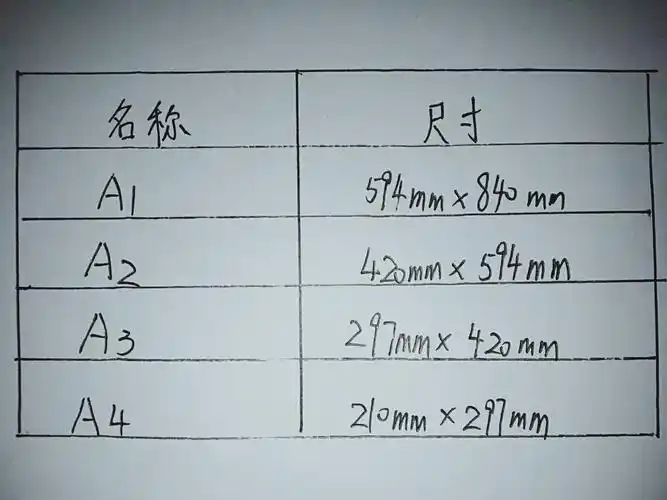 名称 尺寸
A1 594mm × 840mm
A2 420mm × 594mm
A3 297mm × 420mm
A4 210mm × 297mm